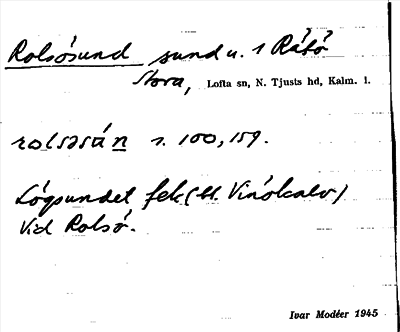 Rolsösund sund u. 1 Råfö
Stora, Lofta sn, N. Tjusts hd, Kalm. l.
rolsəsún s. 100, 159.
Lögsundet fek (bl. Vinökalv)
vid Rolsö.
Ivar Modéer 1945